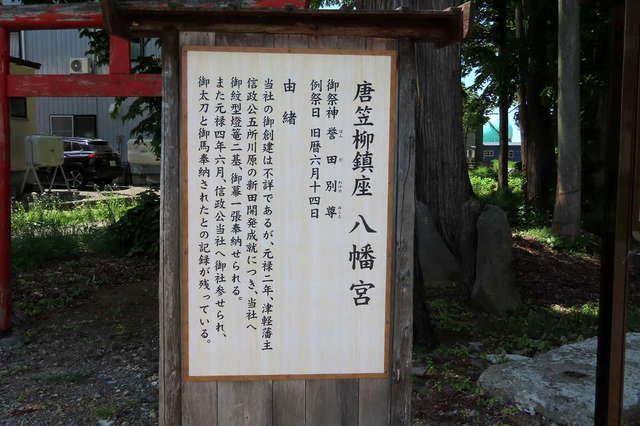 唐笠柳鎮座 八幡宮
御祭神 誉田別尊
ほん だ わけの みこと
例祭日 旧暦六月十四日
由緒
当社の御創建は不詳であるが、元禄二年、津軽藩主
信政公五所川原の新田開発成就につき、当社へ
御紋型燈篭二基、御幕一張奉納せられる。
また元禄四年六月、信政公当社へ御社参せられ、
御太刀と御馬奉納されたとの記録が残っている。